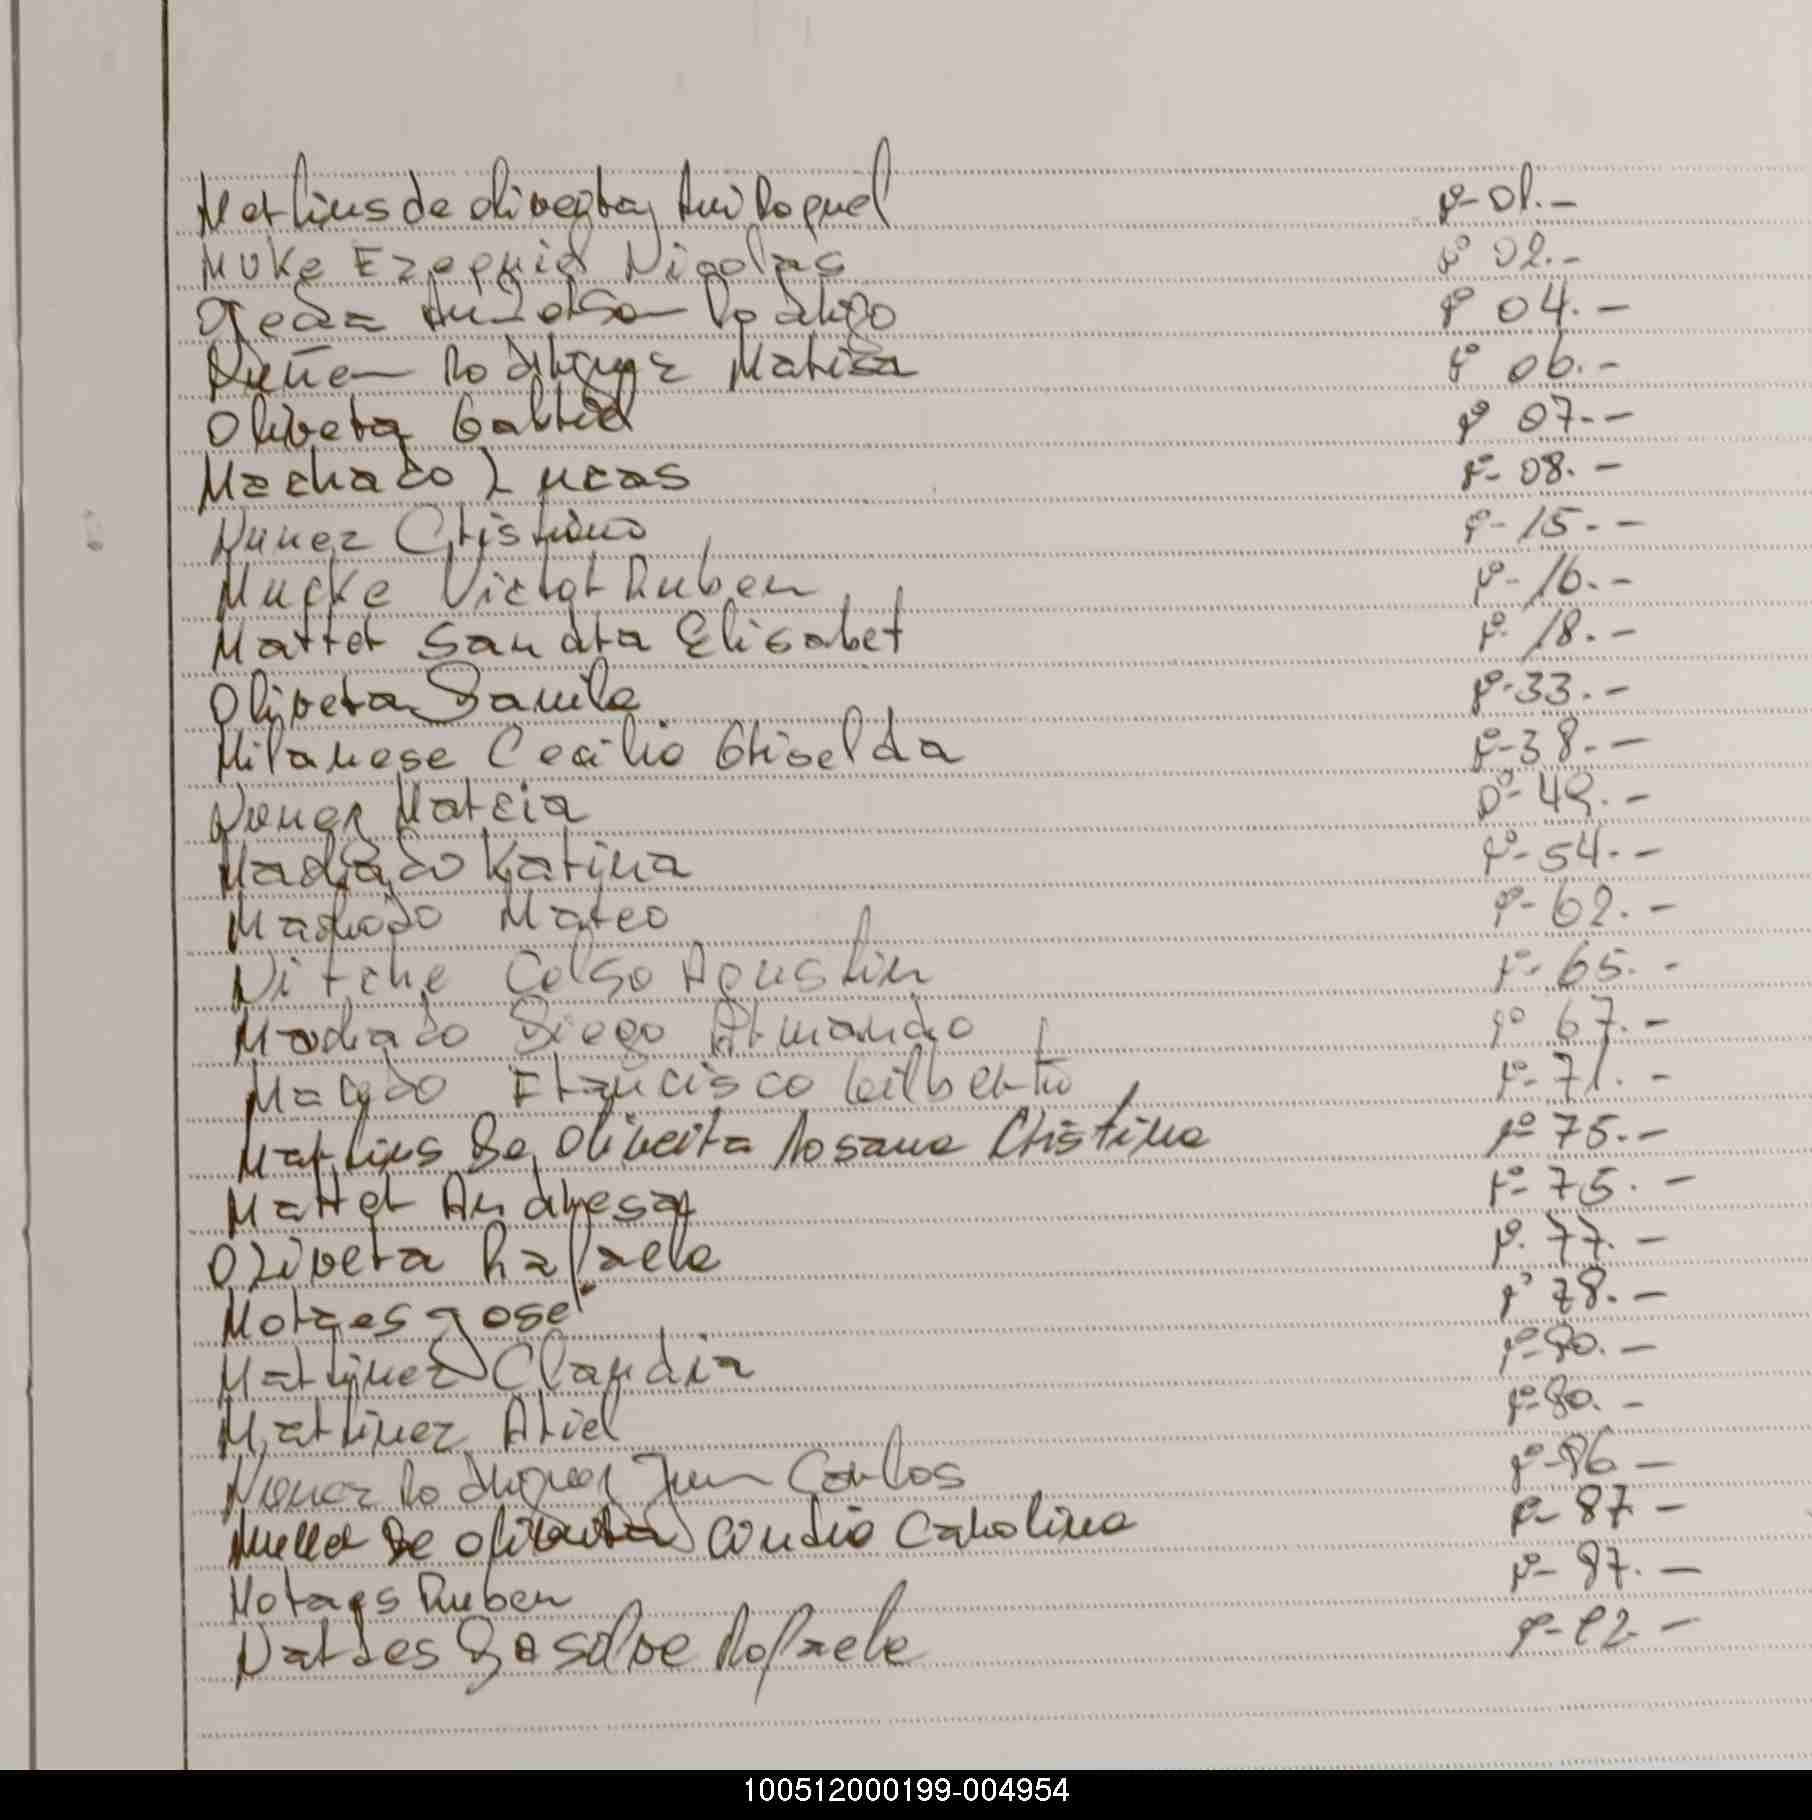 Martins de oliveira, Ani Raquel Fº-01.-
Muke Ezequiel Nicolas Fº 02.-
Ojeda Anderson Rodrigo Fº 04.-
Nuñen Rodriguez Matiza Fº 06.-
Olivera Gabriel Fº 07.-
Machado Lucas Fº- 08.-
Nunez Cristiano Fº-15.-
Mucke Victor Ruben Fº-16.-
Marrer Sandra Elisabet Fº-18.-
Olivera Danila Fº-33.-
Milanese Cecilia Griselda Fº-38.-
Nunez Marcia Fº-49.-
Machado Karina Fº-54.-
Machado Mateo Fº-62.-
Nitche Celso Agustin Fº-65.-
Machado Diego Armando Fº 67.-
Macedo Francisco Gilberto Fº-71.-
Martins De Oliveira Rosana Cristina Fº-75.-
Marrer Andresa Fº-75.-
Olivera Rafaela Fº-77.-
Moraes Jose Fº 78.-
Martinez Claudia Fº-80.-
Martinez Ariel Fº-80.-
Nunez Rodriguez Juan Carlos Fº-86-
Muller De oliveira Cintia Carolina Fº-87-
Moraes Ruben Fº-87.-
Nardes Da Silva Rafaela Fº-92-
100512000199-004954